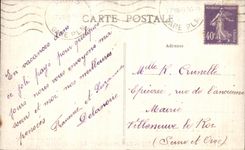 CARTE POSTALE
Adresse
40
En vacances dans
ce joli pays pour quelques
jours nous vous envoyons ma
sœur et moi nos meilleures
pensées
Delanoue
Mlle K. Crunelle
Epicerie, rue de l'ancienne
Mairie
Villeneuve le Roi
(Seine et Oise)